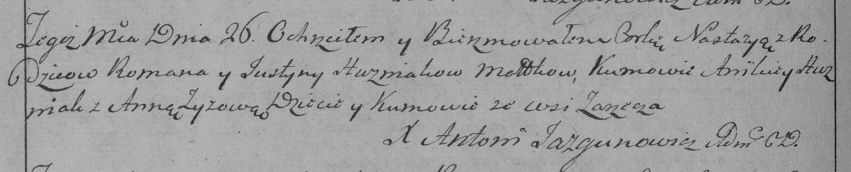 Tegoż Mca Dnia 26. Ochrzciłem y Bierzmowałem Corkę Nastazyą z Ro-
dzicow Romana y Justyny Huzniakow Małżkow, Kumowie Huz
niak z Anną Zyzową Dziecie y Kumowie ze wsi Zarzecza
X Antoni Jazgunowicz Adm: CD.